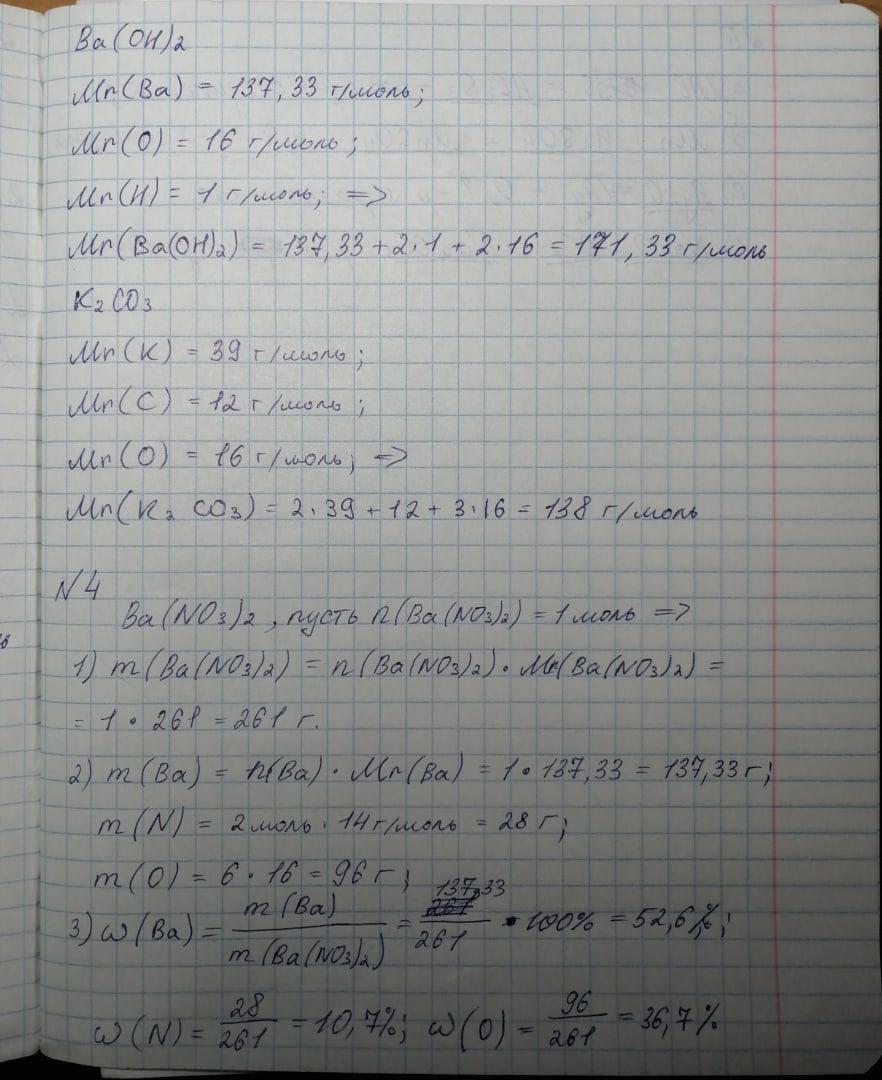 Ba(OH)2
Mr(Ba) = 137,33 г/моль;
Mr(O) = 16 г/моль;
Mr(H) = 1 г/моль; =>
Mr(Ba(OH)2) = 137,33 + 2·1 + 2·16 = 171,33 г/моль
K2CO3
Mr(K) = 39 г/моль;
Mr(C) = 12 г/моль;
Mr(O) = 16 г/моль; =>
Mr(K2CO3) = 2·39 + 12 + 3·16 = 138 г/моль
N4
Ba(NO3)2, пусть n(Ba(NO3)2) = 1 моль =>
1) m(Ba(NO3)2) = n(Ba(NO3)2)·Mr(Ba(NO3)2) =
= 1 · 261 = 261 г.
2) m(Ba) = n(Ba)·Mr(Ba) = 1·137,33 = 137,33 г;
m(N) = 2 моль · 14 г/моль = 28 г;
m(O) = 6·16 = 96 г;
3) ω(Ba) = m(Ba)/m(Ba(NO3)2) = 137,33/261 · 100% = 52,6%;
ω(N) = 28/261 = 10,7%; ω(O) = 96/261 = 36,7%